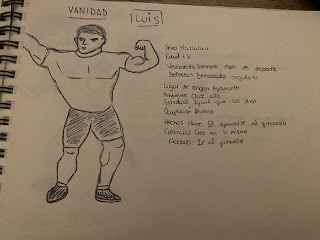 VANIDAD
LUIS
Sexo Masculino
Edad 18
Vestimenta Siempre ropa de deporte
Defectos Demasiado orgulloso
Lugar de origen Ayamonte
Ambiente Clase alta
Estudios Igual que los otros
Ocupación Alumno
Hechos clave El apuntarse al gimnasio
Creencias Cree en ti mismo
Hobbies: Ir al gimnasio